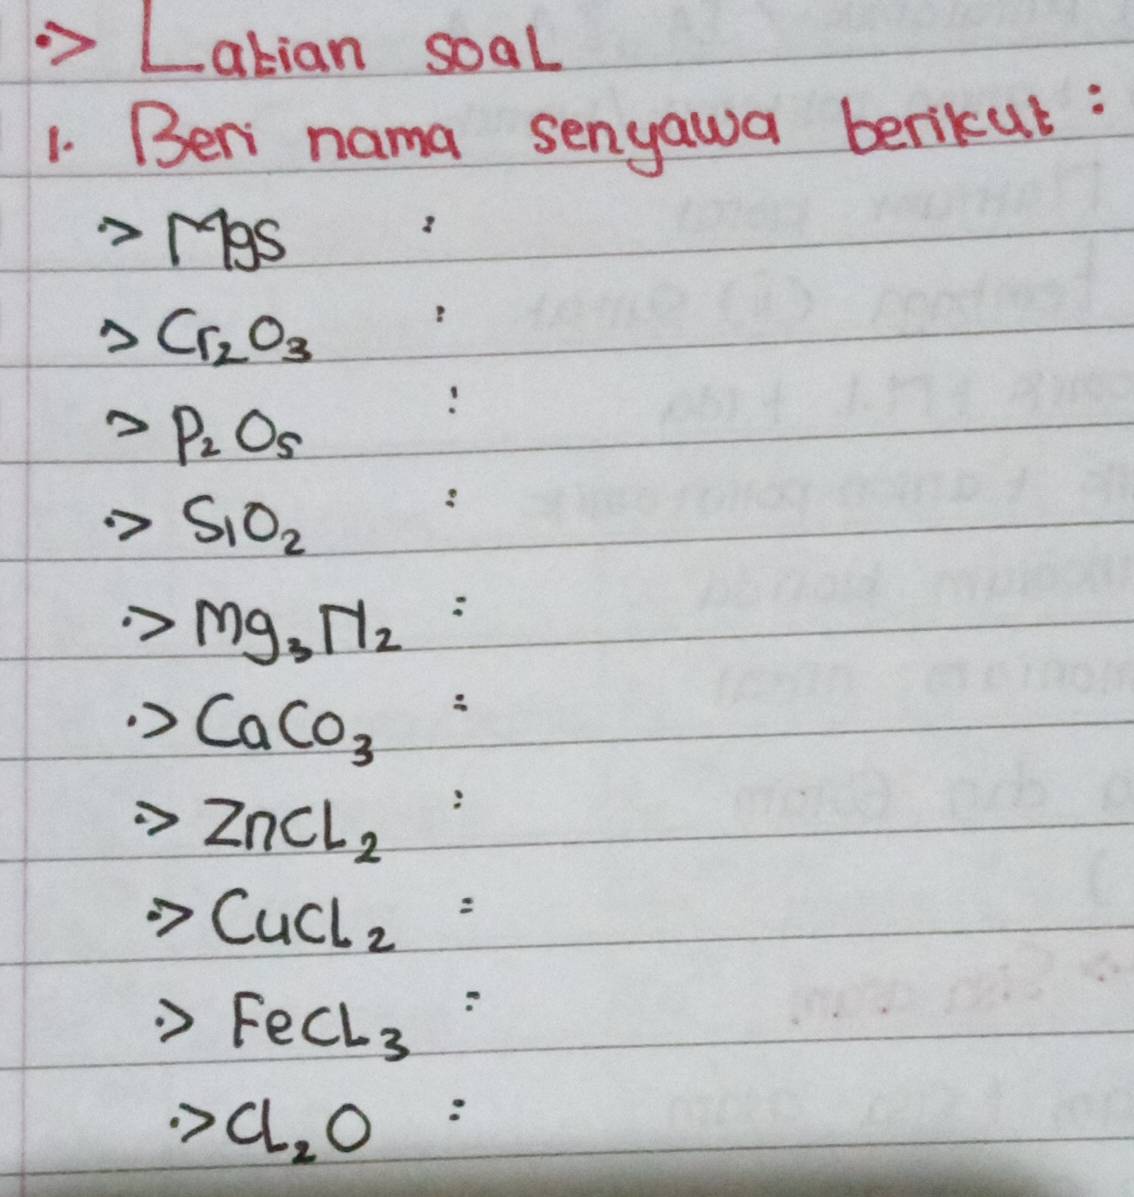 -> Latian soal
1. Beri nama senyawa berikut :
-> MgS :
-> Cr₂O₃ :
-> P₂O₅ :
-> SiO₂ :
-> Mg₃N₂ :
-> CaCO₃ :
-> ZnCL₂ :
-> CuCL₂ :
-> FeCL₃ :
-> CL₂O :